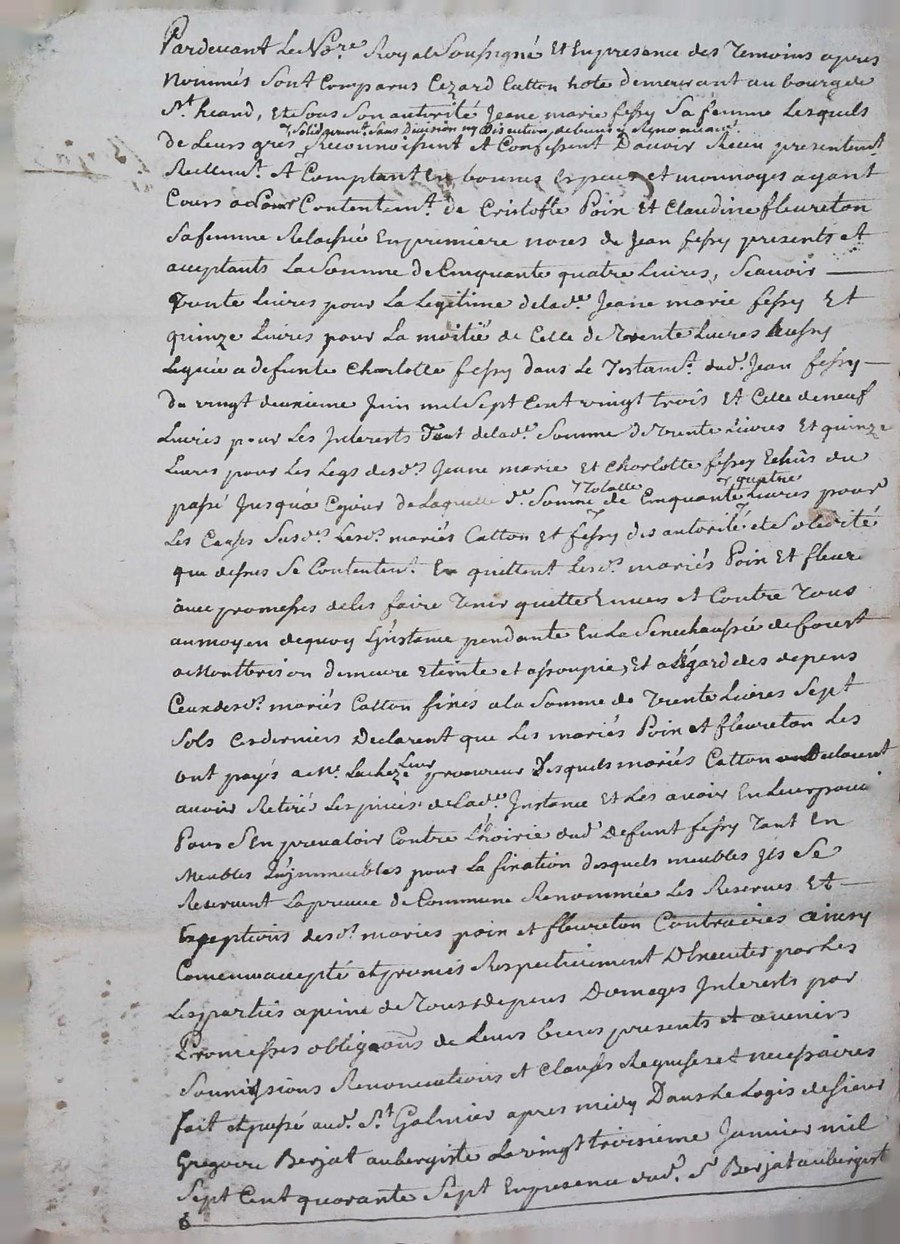 Pardevant Le No.re Royal Soussigné Et En presence des Temoins apres
Nommés Sont Comparus Cezard Catton hote demeurant au bourg de
St. heand, Et Sous Son autorité Jeane marie fessy Sa femme Lesquels
Solidairemt. Sans Division ny Discution de biens y Renonceant
de Leurs grés Reconnoissent et Confessent Davoir Receu presentemt.
Reellemt. Et Comptant En bonnes Especes et monnoyes ayant
Cours a Leur Contentemt. de Cristofle Poin Et Claudine fleureton
Sa femme Relaissée En premiere noces de Jean fessy presents et
acceptants La Somme de Cinquante quatre Livres, Scavoir
Trente Livres pour La Legitime de lad.e Jeane marie fessy Et
quinze Livres pour La moitié de Celle de Trente Livres aussy
Leguée a defunte Charlotte fessy dans Le Testamt. dud. Jean fessy
du vingt deuxieme Juin mil Sept Cent vingt trois Et Celle de neuf
Livres pour Les Interets Tant de lad.e Somme de Trente Livres Et quinze
Livres pour Les Legs desd. Jeane marie et Charlotte fessy Echûs du
Totalle quatre
passé Jusqua Cejour de Laquelle d.e Somme de Cinquante Livres pour
Les Causes Susd.es Lesd. mariés Catton Et fessy des autorité et Solidité
que dessus Se Contentent. En quittent Lesd. mariés Poin Et fleur.
avec promesses de les faire Tenir quitte Envers et Contre Tous
au moyen dequoy L'instance pendante En La Senechaussée de forest
a Montbrison demeure Eteinte et assoupie, Et a L'égard des depens
Ceux desd. mariés Catton fixés a la Somme de Trente Livres Sept
Sols Cesderniers Declarent que Les mariés Poin et fleureton Les
ont payés a Me. Lacheze Leur procureur Desquels mariés Catton Declarent
avoir Retiré Les pieces de Lad.e Instance Et Les avoir En Leur pouvoir
Pour S'En prevaloir Contre L'hoirie dud. Defunt fessy Tant En
Meubles qu'jmmeubles pour La fixation desquels meubles Jls Se
Reservent La preuve de Commune Renommée Les Reserves Et
Exeptions desd. mariés poin et fleureton Contraires ainsy
Convenu accepté et promis Respectivement D'Executer par Les
Les parties a peine de Tous depens Domages Interests par
Promesses obligaons. de Leurs biens presents et avenirs
Soumissions Renonciations et Clauses Requises et necessaires
fait et passé aud. St. Galmier apres midy Dans Le Logis de Sieur
Gregoire Berjat aubergiste Le vingt troisieme Janvier mil
Sept Cent quarante Sept En presence dud. Sr Berjat aubergist